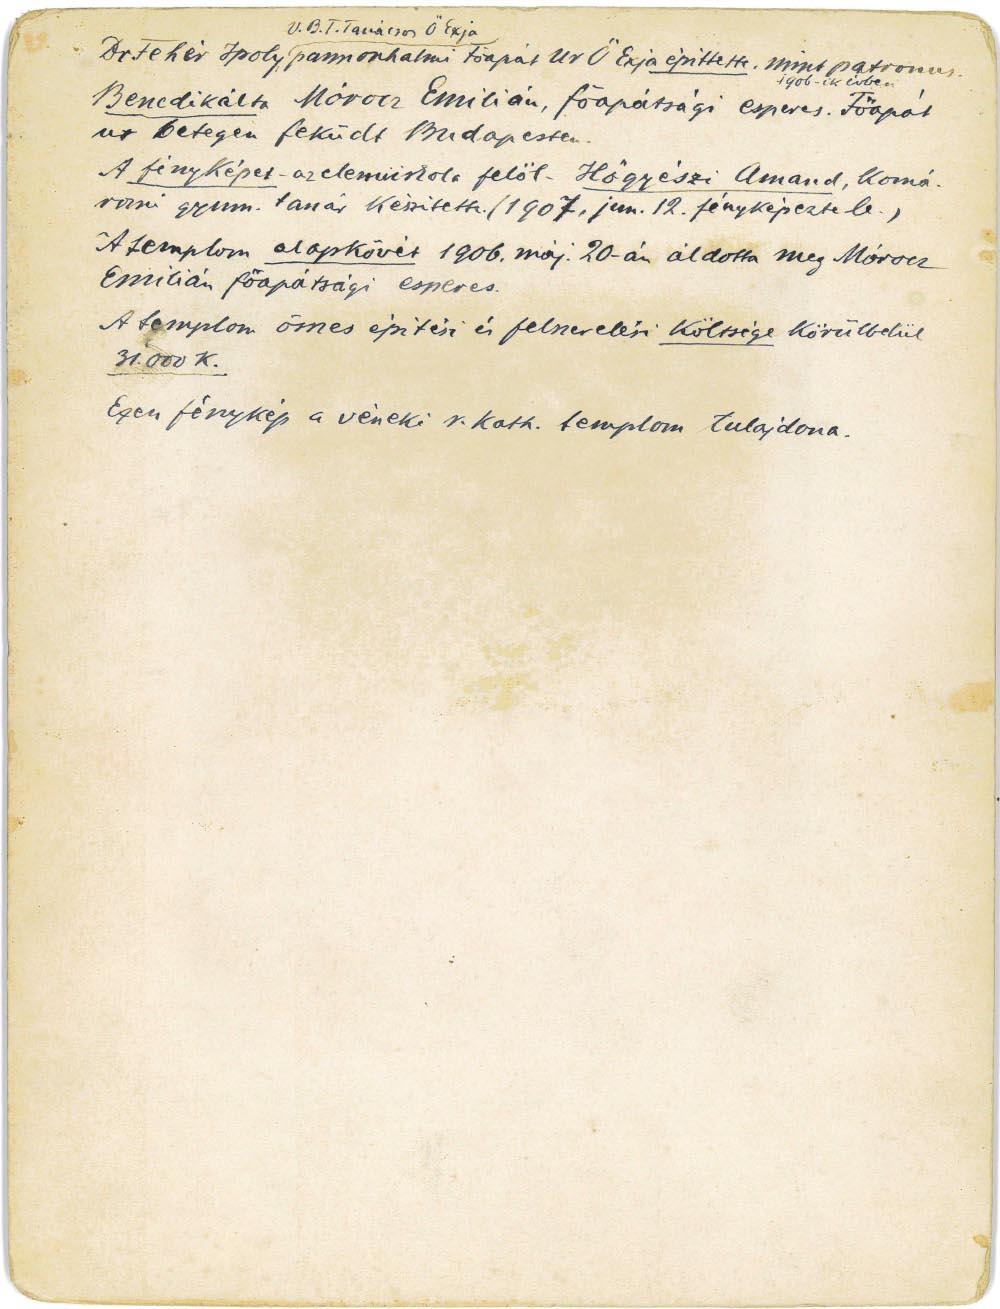 V. B. T. Tanácsos Ő Exja
Dr. Fehér Ipoly, pannonhalmi főapát Ur Ő Exja építtette, mint patronus.
1906-ik évben
Benedikálta Mórocz Emilián, főapátsági esperes. Főapát
ur betegen feküdt Budapesten.
A fényképet - az elemi iskola felöl - Hőgyészi Amand, komá-
romi gymn. tanár készitette. (1907, jun. 12. fényképezte le.)
A templom alapkövét 1906. máj. 20-án áldotta meg Mórocz
Emilián főapátsági esperes.
A templom össes épitési és felszerelési költsége körülbelül
31.000 K.
Ezen fénykép a véneki r. kath. templom tulajdona.